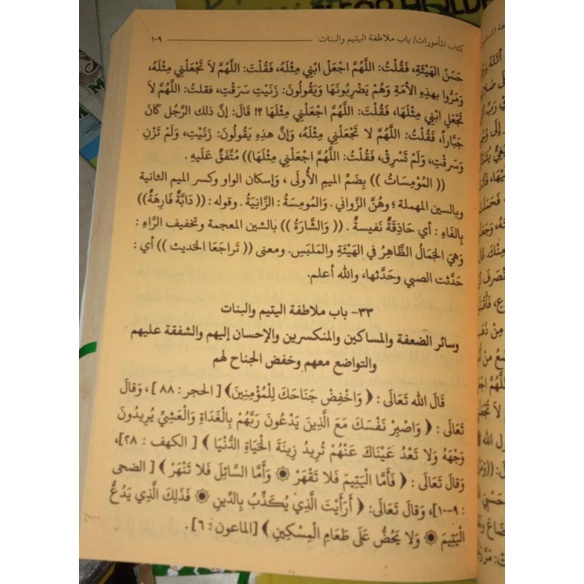 كتاب المأمورات/ باب ملاطفة اليتيم والبنات ١٠٩
حَسَنُ الهَيْئَةِ، فَقُلْتُ: اللَّهُمَّ اجْعَلْ ابْنِي مِثْلَهُ، فَقُلْتَ: اللَّهُمَّ لَا تَجْعَلْنِي مِثْلَهُ،
وَمَرُّوا بهذِهِ الأَمَةِ وَهُمْ يَضْرِبُونَهَا وَيَقُولُونَ: زَنَيْتِ سَرَقْتِ، فقلتُ: اللَّهُمَّ لا
تَجْعَلِ ابْنِي مِثْلَهَا، فَقُلْتَ: اللَّهُمَّ اجْعَلْنِي مِثْلَهَا؟! قَالَ: إنَّ ذلك الرَّجُل كَانَ
جَبَّاراً، فَقُلْتُ: اللَّهُمَّ لا تَجْعَلْنِي مِثْلَهُ، وَإِنَّ هذِهِ يَقُولُونَ: زَنَيْتِ، وَلَمْ تَزْنِ
وَسَرقْتِ، وَلَمْ تَسْرِقْ، فَقُلْتُ: اللَّهُمَّ اجْعَلْنِي مِثْلَهَا)) مُتَّفَقٌ عَلَيهِ .
(( المُوْمِسَاتُ )) بِضَمِّ الميمِ الأُولَى ، وَإسكان الواو وكسر الميم الثانية
وبالسين المهملة ؛ وهُنَّ الزَّواني . وَالمُومِسَةُ: الزَّانِيَةُ . وقوله : (( دَابَّةٌ فَارِهَةٌ ))
بِالفَاءِ : أي حَاذِقَةٌ نَفيسةٌ . (( وَالشَّارَةُ )) بالشين المعجمة وتخفيف الرَّاءِ :
وَهِيَ الجَمَالُ الظَّاهِرُ في الهَيْئَةِ والمَلبَسِ. ومعنى (( تَراجَعَا الحديث )) أي :
حَدَّثت الصبي وحَدَّثها، والله أعلم.
٣٣- باب ملاطفة اليتيم والبنات
وسائر الضعفة والمساكين والمنكسرين والإحسان إليهم والشفقة عليهم
والتواضع معهم وخفض الجناح لهم
قَالَ الله تَعَالَى : ﴿ وَاخْفِضْ جَنَاحَكَ لِلْمُؤْمِنِينَ ﴾[ الحجر : ٨٨ ]، وَقَالَ
تَعَالَى : ﴿ وَاصْبِرْ نَفْسَكَ مَعَ الَّذِينَ يَدْعُونَ رَبَّهُمْ بِالْغَدَاةِ وَالْعَشِيِّ يُرِيدُونَ
وَجْهَهُ وَلا تَعْدُ عَيْنَاكَ عَنْهُمْ تُرِيدُ زِينَةَ الْحَيَاةِ الدُّنْيَا ﴾ [ الكهف : ٢٨]،
وَقَالَ تَعَالَى : ﴿ فَأَمَّا الْيَتِيمَ فَلا تَقْهَرْ ۞ وَأَمَّا السَّائِلَ فَلا تَنْهَرْ ﴾ [ الضحى
: ٩-١٠]، وَقَالَ تَعَالَى: ﴿ أَرَأَيْتَ الَّذِي يُكَذِّبُ بِالدِّينِ ۞ فَذَلِكَ الَّذِي يَدُعُّ
الْيَتِيمَ ۞ وَلا يَحُضُّ عَلَى طَعَامِ الْمِسْكِينِ ﴾ [الماعون : ٦] .